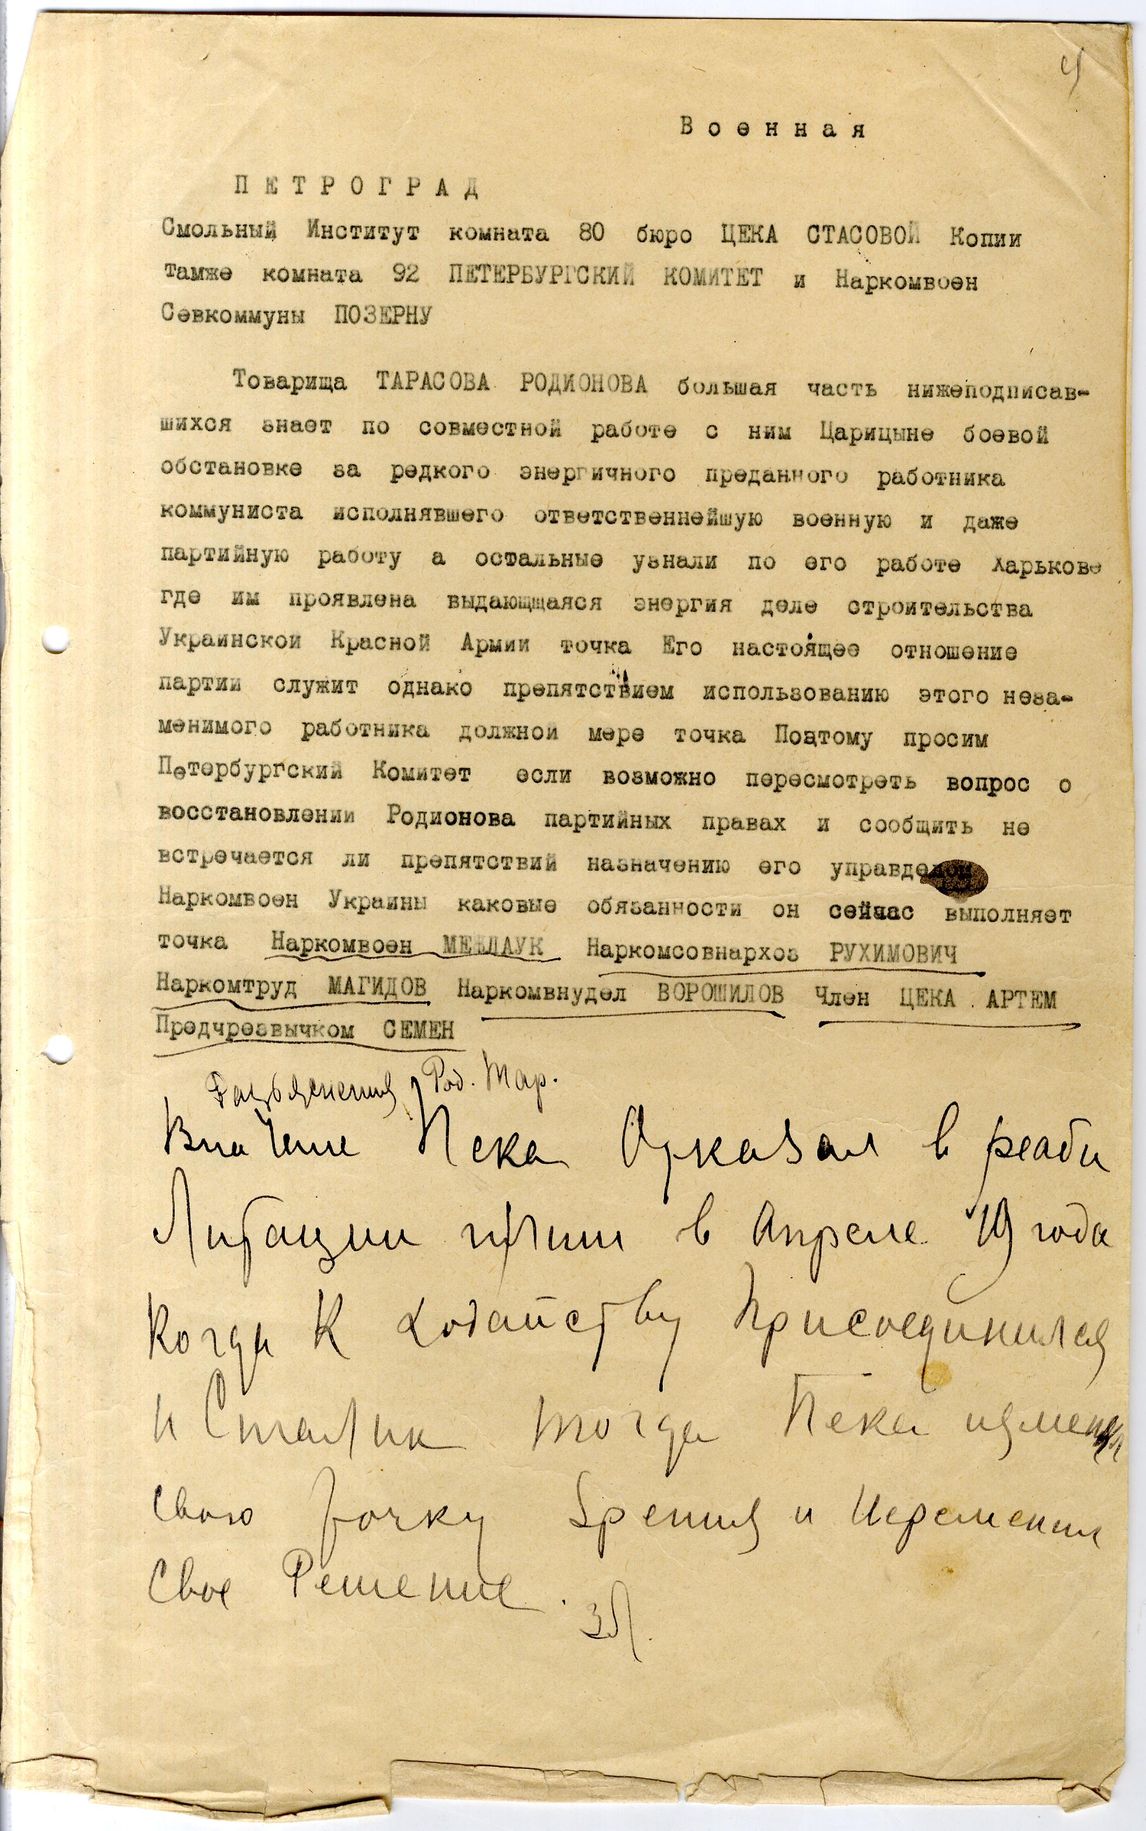 4
Военная
ПЕТРОГРАД
Смольный Институт комната 80 бюро ЦЕКА СТАСОВОЙ Копии
тамже комната 92 ПЕТЕРБУРГСКИЙ КОМИТЕТ и Наркомвоен
Севкоммуны ПОЗЕРНУ
Товарища ТАРАСОВА РОДИОНОВА большая часть нижеподписав-
шихся знает по совместной работе с ним Царицыне боевой
обстановке за редкого энергичного преданного работника
коммуниста исполнявшего ответственнейшую военную и даже
партийную работу а остальные узнали по его работе Харькове
где им проявлена выдающщаяся энергия деле строительства
Украинской Красной Армии точка Его настоящее отношение
партии служит однако препятствием использованию этого неза-
менимого работника должной мере точка Поэтому просим
Петербургский Комитет если возможно пересмотреть вопрос о
восстановлении Родионова партийных правах и сообщить не
встречается ли препятствий назначению его управделом
Наркомвоен Украины каковые обязанности он сейчас выполняет
точка Наркомвоен МЕЖЛАУК Наркомсовнархоз РУХИМОВИЧ
Наркомтруд МАГИДОВ Наркомвнудел ВОРОШИЛОВ Член ЦЕКА АРТЕМ
Предчрезвычком СЕМЕН
Род. Тар.
Вначале Пека Отказал в реаби
Литации и в Апреле 19 года
Когда К ходатайству Присоединился
и Сталин тогда Пека изменил
свою точку Зрения и Переменил
Свое Решение.